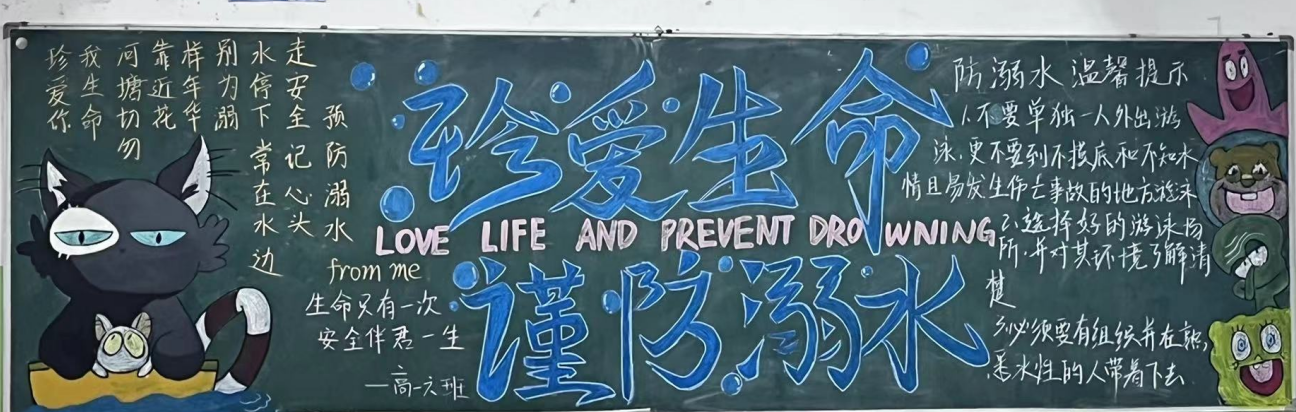 珍爱你
我生命
河塘切勿
靠近花
样年华
别为溺
水停下 常在水边
走安全记心头
预防溺水
from me
生命只有一次
安全伴君一生
—高一六班
珍爱生命
LOVE LIFE AND PREVENT DROWNING
谨防溺水
防溺水温馨提示
1.不要单独一人外出游
泳,更不要到不摸底和不知水
情且易发生伤亡事故的地方游泳
2.选择好的游泳场
所,并对其环境了解清
楚
3.必须要有组织并在熟
悉水性的人带着下去